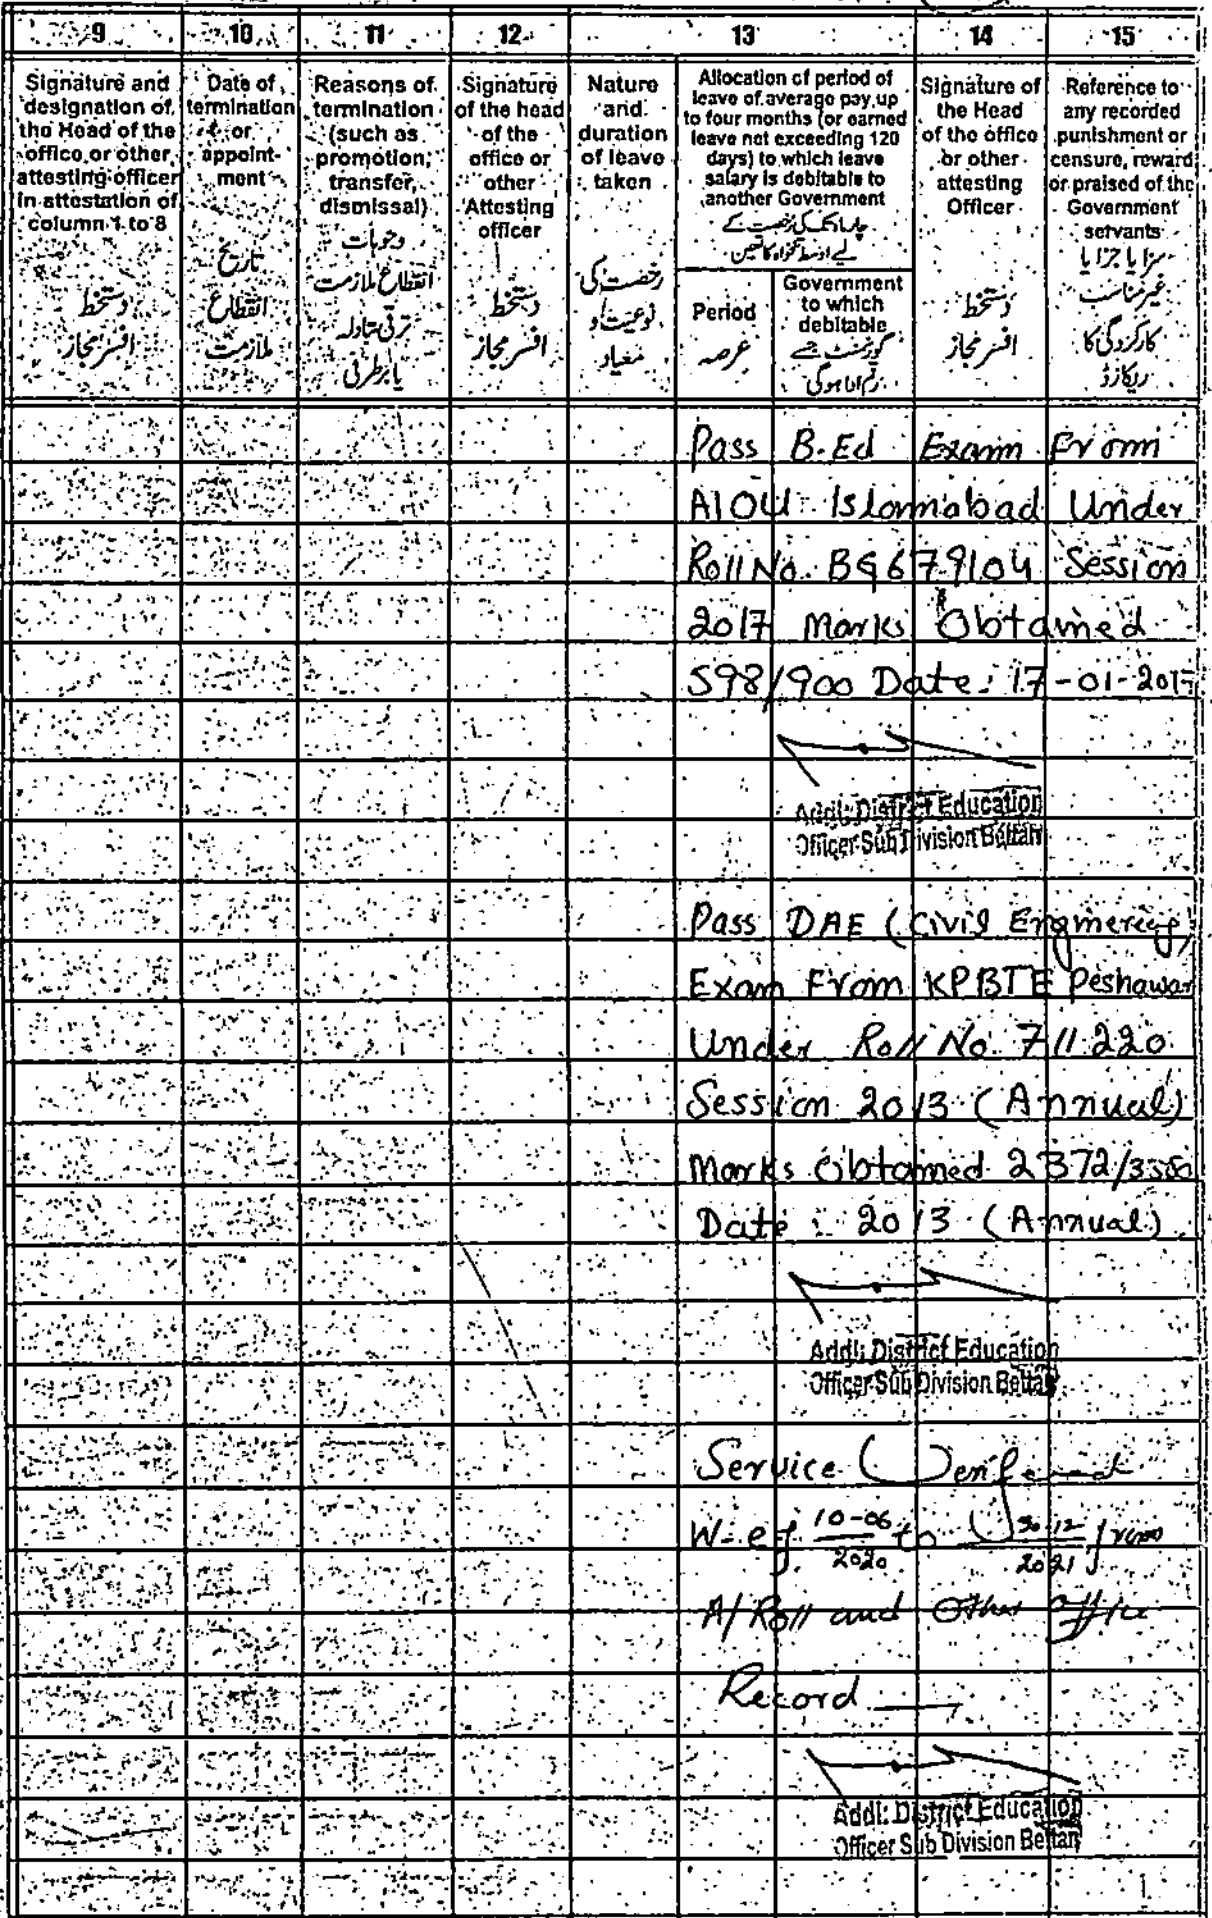 9 10 11 12 13 14 15
Signature and designation of the Head of the office or other attesting officer in attestation of column 1 to 8
دستخط
افسر مجاز
Date of termination or appoint-ment
تاریخ
انقطاع
ملازمت
Reasons of termination (such as promotion, transfer, dismissal)
وجوہات
انقطاع ملازمت
ترقی تبادلہ
یا برطرفی
Signature of the head of the office or other Attesting officer
دستخط
افسر مجاز
Nature and duration of leave taken
رخصت کی
نوعیت و
معیاد
Allocation of period of leave of average pay up to four months (or earned leave not exceeding 120 days) to which leave salary is debitable to another Government
چار ماہ تک کی رخصت کے
لیے اوسط تنخواہ کا تعین
Period
عرصہ
Government to which debitable
گورنمنٹ جسے
رقم ادا ہوگی
Signature of the Head of the office or other attesting Officer
دستخط
افسر مجاز
Reference to any recorded punishment or censure, reward or praised of the Government servants
سزا یا جزا یا
غیر مناسب
کارکردگی کا
ریکارڈ
Pass B.Ed Exam From
AIOU Islamabad Under
Roll No. BG679104 Session
2017 Marks Obtained
598/900 Date: 17-01-2017
Addl: District Education
Officer Sub Division Bettan
Pass DAE (Civil Engineering)
Exam From KPBTE Peshawar
Under Roll No. 711220
Session 2013 (Annual)
Marks Obtained 2372/3550
Date: 2013 (Annual)
Addl: District Education
Officer Sub Division Bettan
Service Verified
W-ef 10-06-2020 to 30-12-2021 from
A/Roll and Other Office
Record
Addl: District Education
Officer Sub Division Bettan